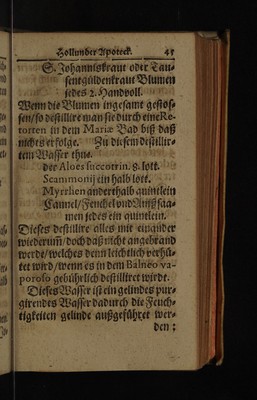 Hollunder Apoteck. 45
S. Johanniskraut oder Tau-
sentgüldenkraut Blumen
jedes 2. Handvoll.
Wenn die Blumen ingesamt gestos-
sen/ so destillire man sie durch eine Re-
torten in dem Mariæ Bad biß daß
nichts erfolge. Zu diesem destillir-
tem Wasser thue.
der Aloes succotrin. 8. lott.
Scammonij ein halb lott.
Myrrhen anderthalb quintlein
Cannel/ Fenchel und Aniß saa-
men jedes ein quintlein.
Dieses destillire alles mit einander
wiederum/ doch daß nicht angebrand
werde/ welches denn leichtlich verhü-
tet wird/ wenn es in dem Balneo va-
poroso gebührlich destilliret wirdt.
Dieses Wasser ist ein gelindes pur-
girendes Wasser dadurch die Feuch-
tigkeiten gelinde außgeführet wer-
den :